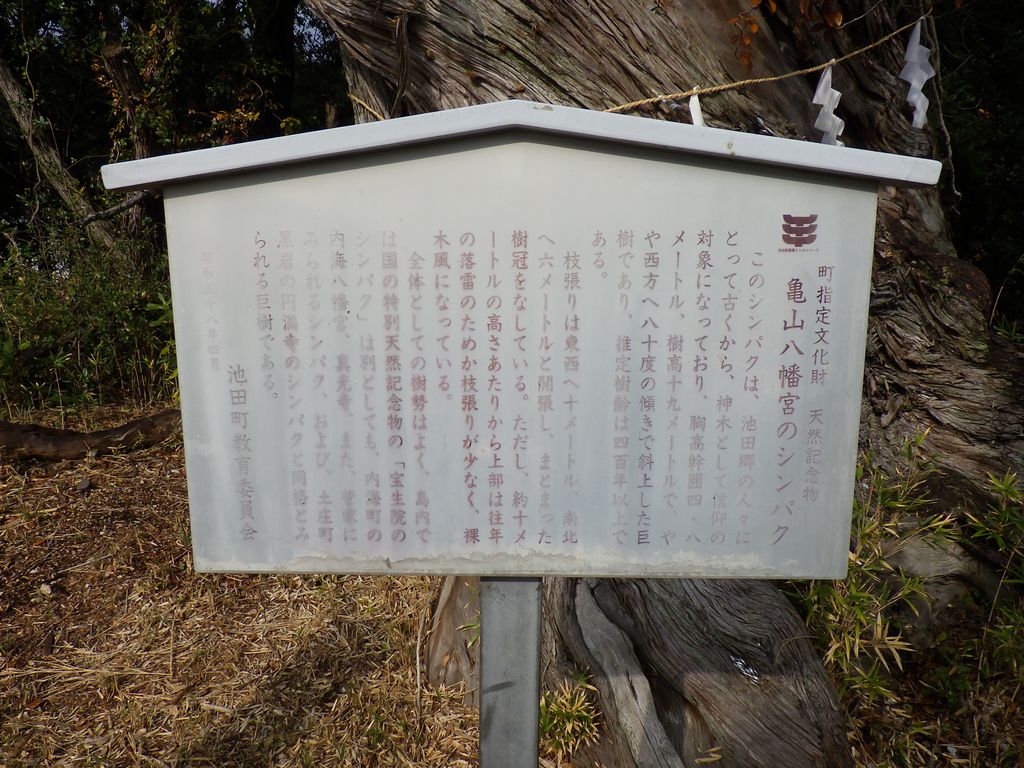 町指定文化財 天然記念物
亀山八幡宮のシンパク
このシンパクは、池田郷の人々に
とって古くから、神木として信仰の
対象になっており、胸高幹囲四、八
メートル、樹高十九メートルで、や
や西方へ八十度の傾きで斜上した巨
樹であり、推定樹齢は四百年以上で
ある。
枝張りは東西へ十メートル、南北
へ六メートルと開張し、まとまった
樹冠をなしている。ただし、約十メ
ートルの高さあたりから上部は往年
の落雷のためか枝張りが少なく、裸
木風になっている。
全体としての樹勢はよく、島内で
は国の特別天然記念物の「宝生院の
シンパク」は別としても、内海町の
内海八幡宮、真光寺、また、苗羽に
みられるシンパク、および、土庄町
黒岩の円満寺のシンパクと同格とみ
られる巨樹である。
昭和 十八年四月
池田町教育委員会